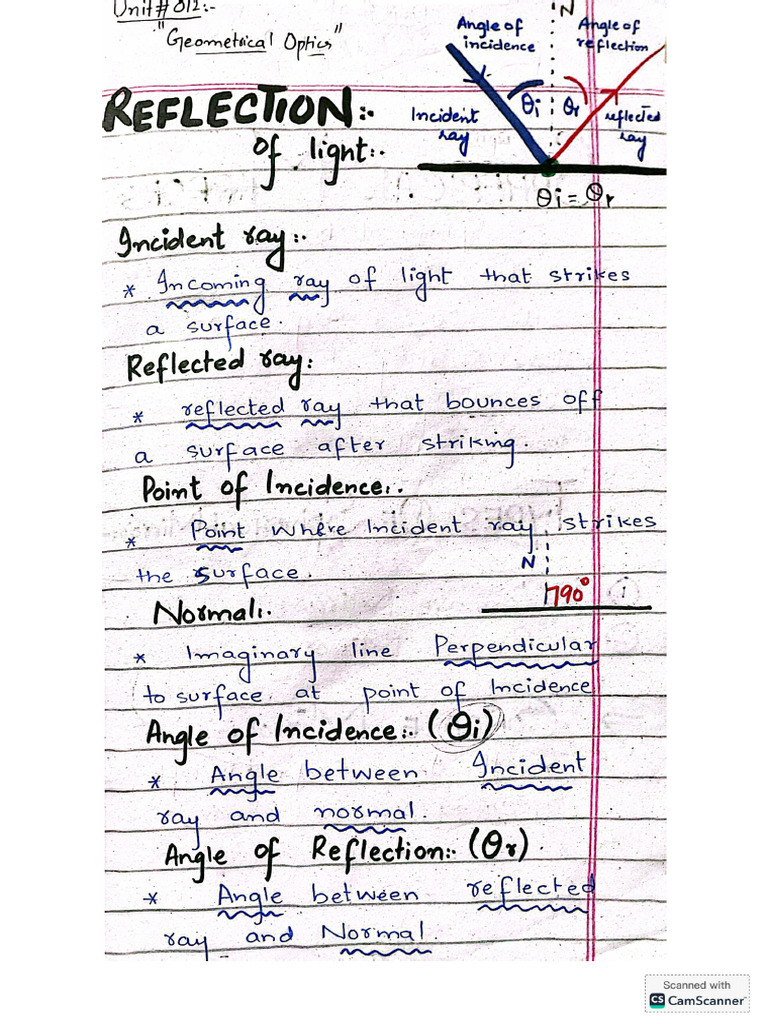 Unit # 012:-
"Geometrical Optics"
N
Angle of
incidence
Angle of
reflection
REFLECTION:-
Of light:-
Incident
ray
θi
θr
reflected
ray
θi = θr
Incident ray:-
* Incoming ray of light that strikes
a surface.
Reflected ray:
* reflected ray that bounces off
a surface after striking.
Point of Incidence:-
* Point where Incident ray strikes
the surface.
N
90°
i
Normal:-
* Imaginary line Perpendicular
to surface at point of Incidence
Angle of Incidence:- (θi)
* Angle between Incident
ray and normal.
Angle of Reflection:- (θr).
* Angle between reflected
ray and Normal.
Scanned with
CS CamScanner